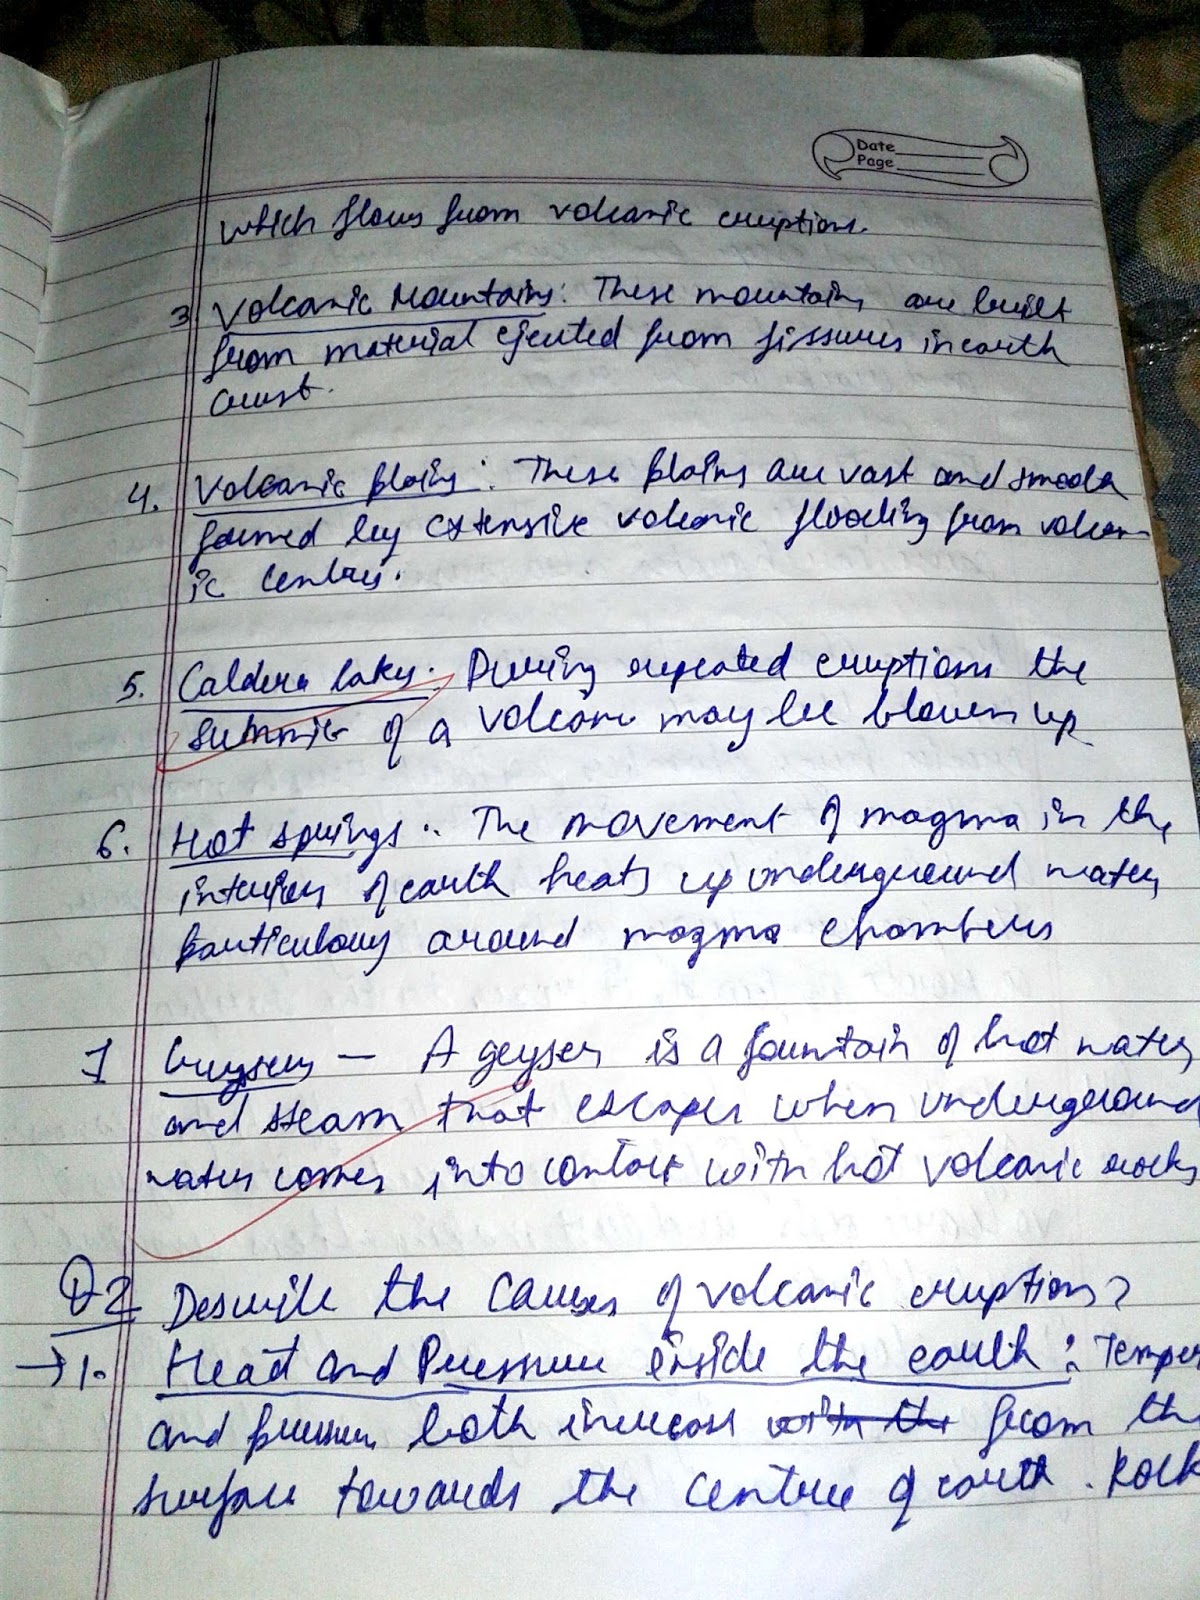 Date
Page
which flows from volcanic eruptions.
3 Volcanic Mountains: These mountains are built
from material ejected from fissures in earth
crust.
4. Volcanic plains: These plains are vast and smooth
formed by extensive volcanic flooding from volcan-
ic centres.
5. Caldera lakes: During repeated eruptions the
summit of a volcano may be blown up
6. Hot springs :. The movement of magma in the
interior of earth heats up underground water,
particularly around magma chambers
7 Geysers — A geyser is a fountain of hot water
and steam that escapes when underground
water comes into contact with hot volcanic rocks
Q2 Describe the causes of volcanic eruptions?
→1. Heat and Pressure inside the earth: Temper
and pressure both increase with the from the
surface towards the centre of earth. Rock